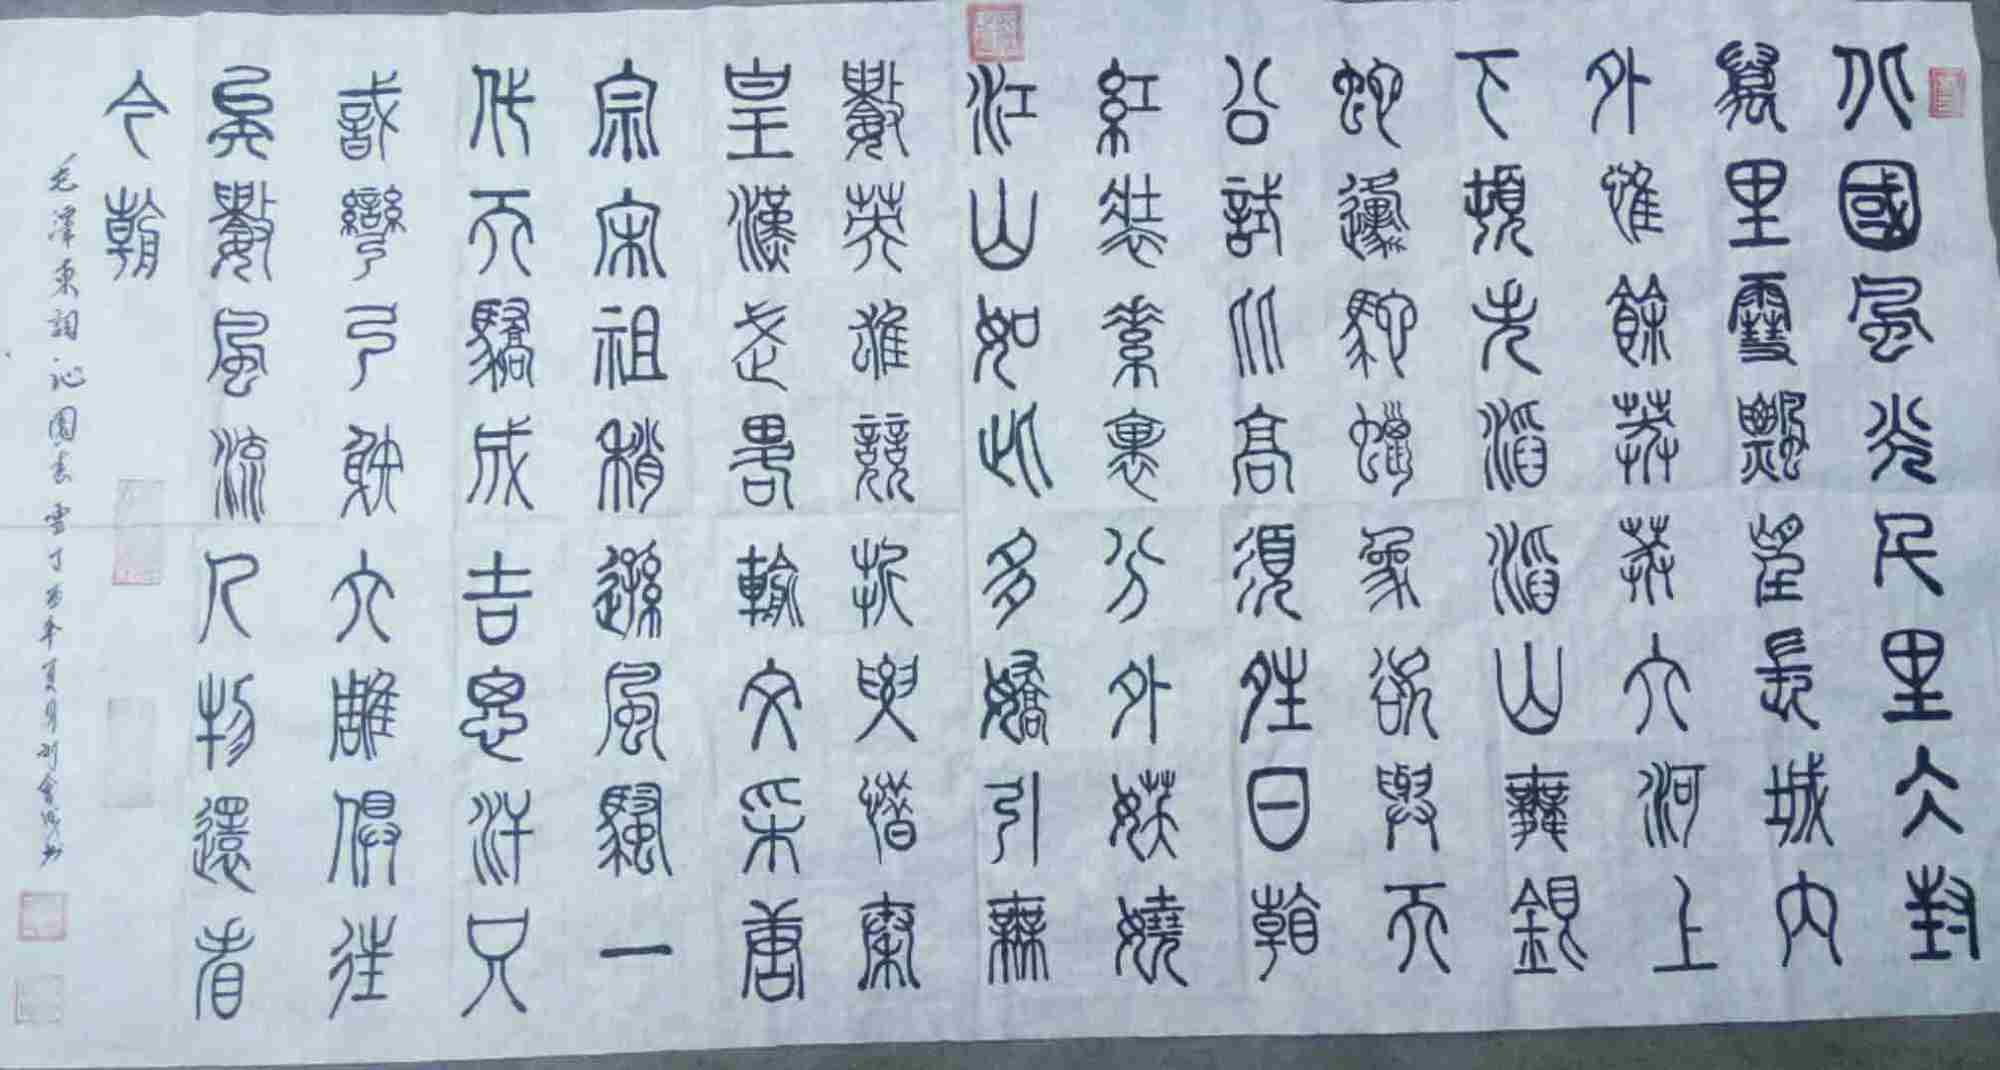 北國風光千里冰封
萬里雪飄望長城內
外惟餘莽莽大河上
下頓失滔滔山舞銀
蛇原馳蠟象欲與天
公試比高須晴日看
紅裝素裹分外妖嬈
江山如此多嬌引無
數英雄競折腰惜秦
皇漢武略輸文采唐
宗宋祖稍遜風騷一
代天驕成吉思汗只
識彎弓射大雕俱往
矣數風流人物還看
今朝
毛澤東詞沁園春雪丁酉年夏月劉會